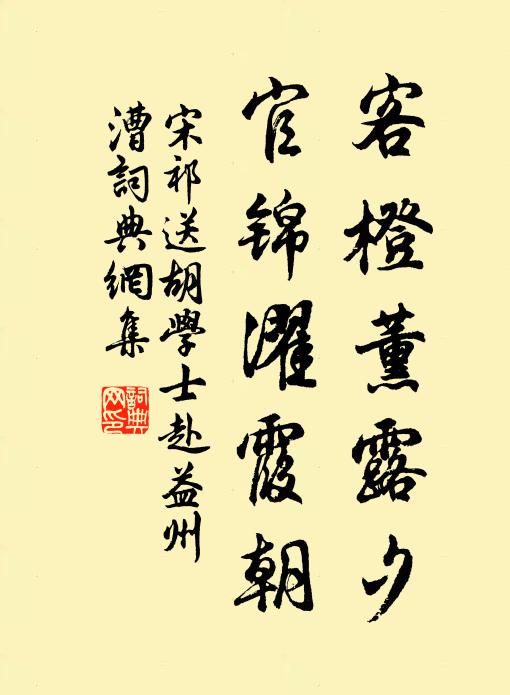 客橙薰露夕
官錦濯霞朝
宋祁送胡學士赴益州
漕詞典網集
詞典
网印